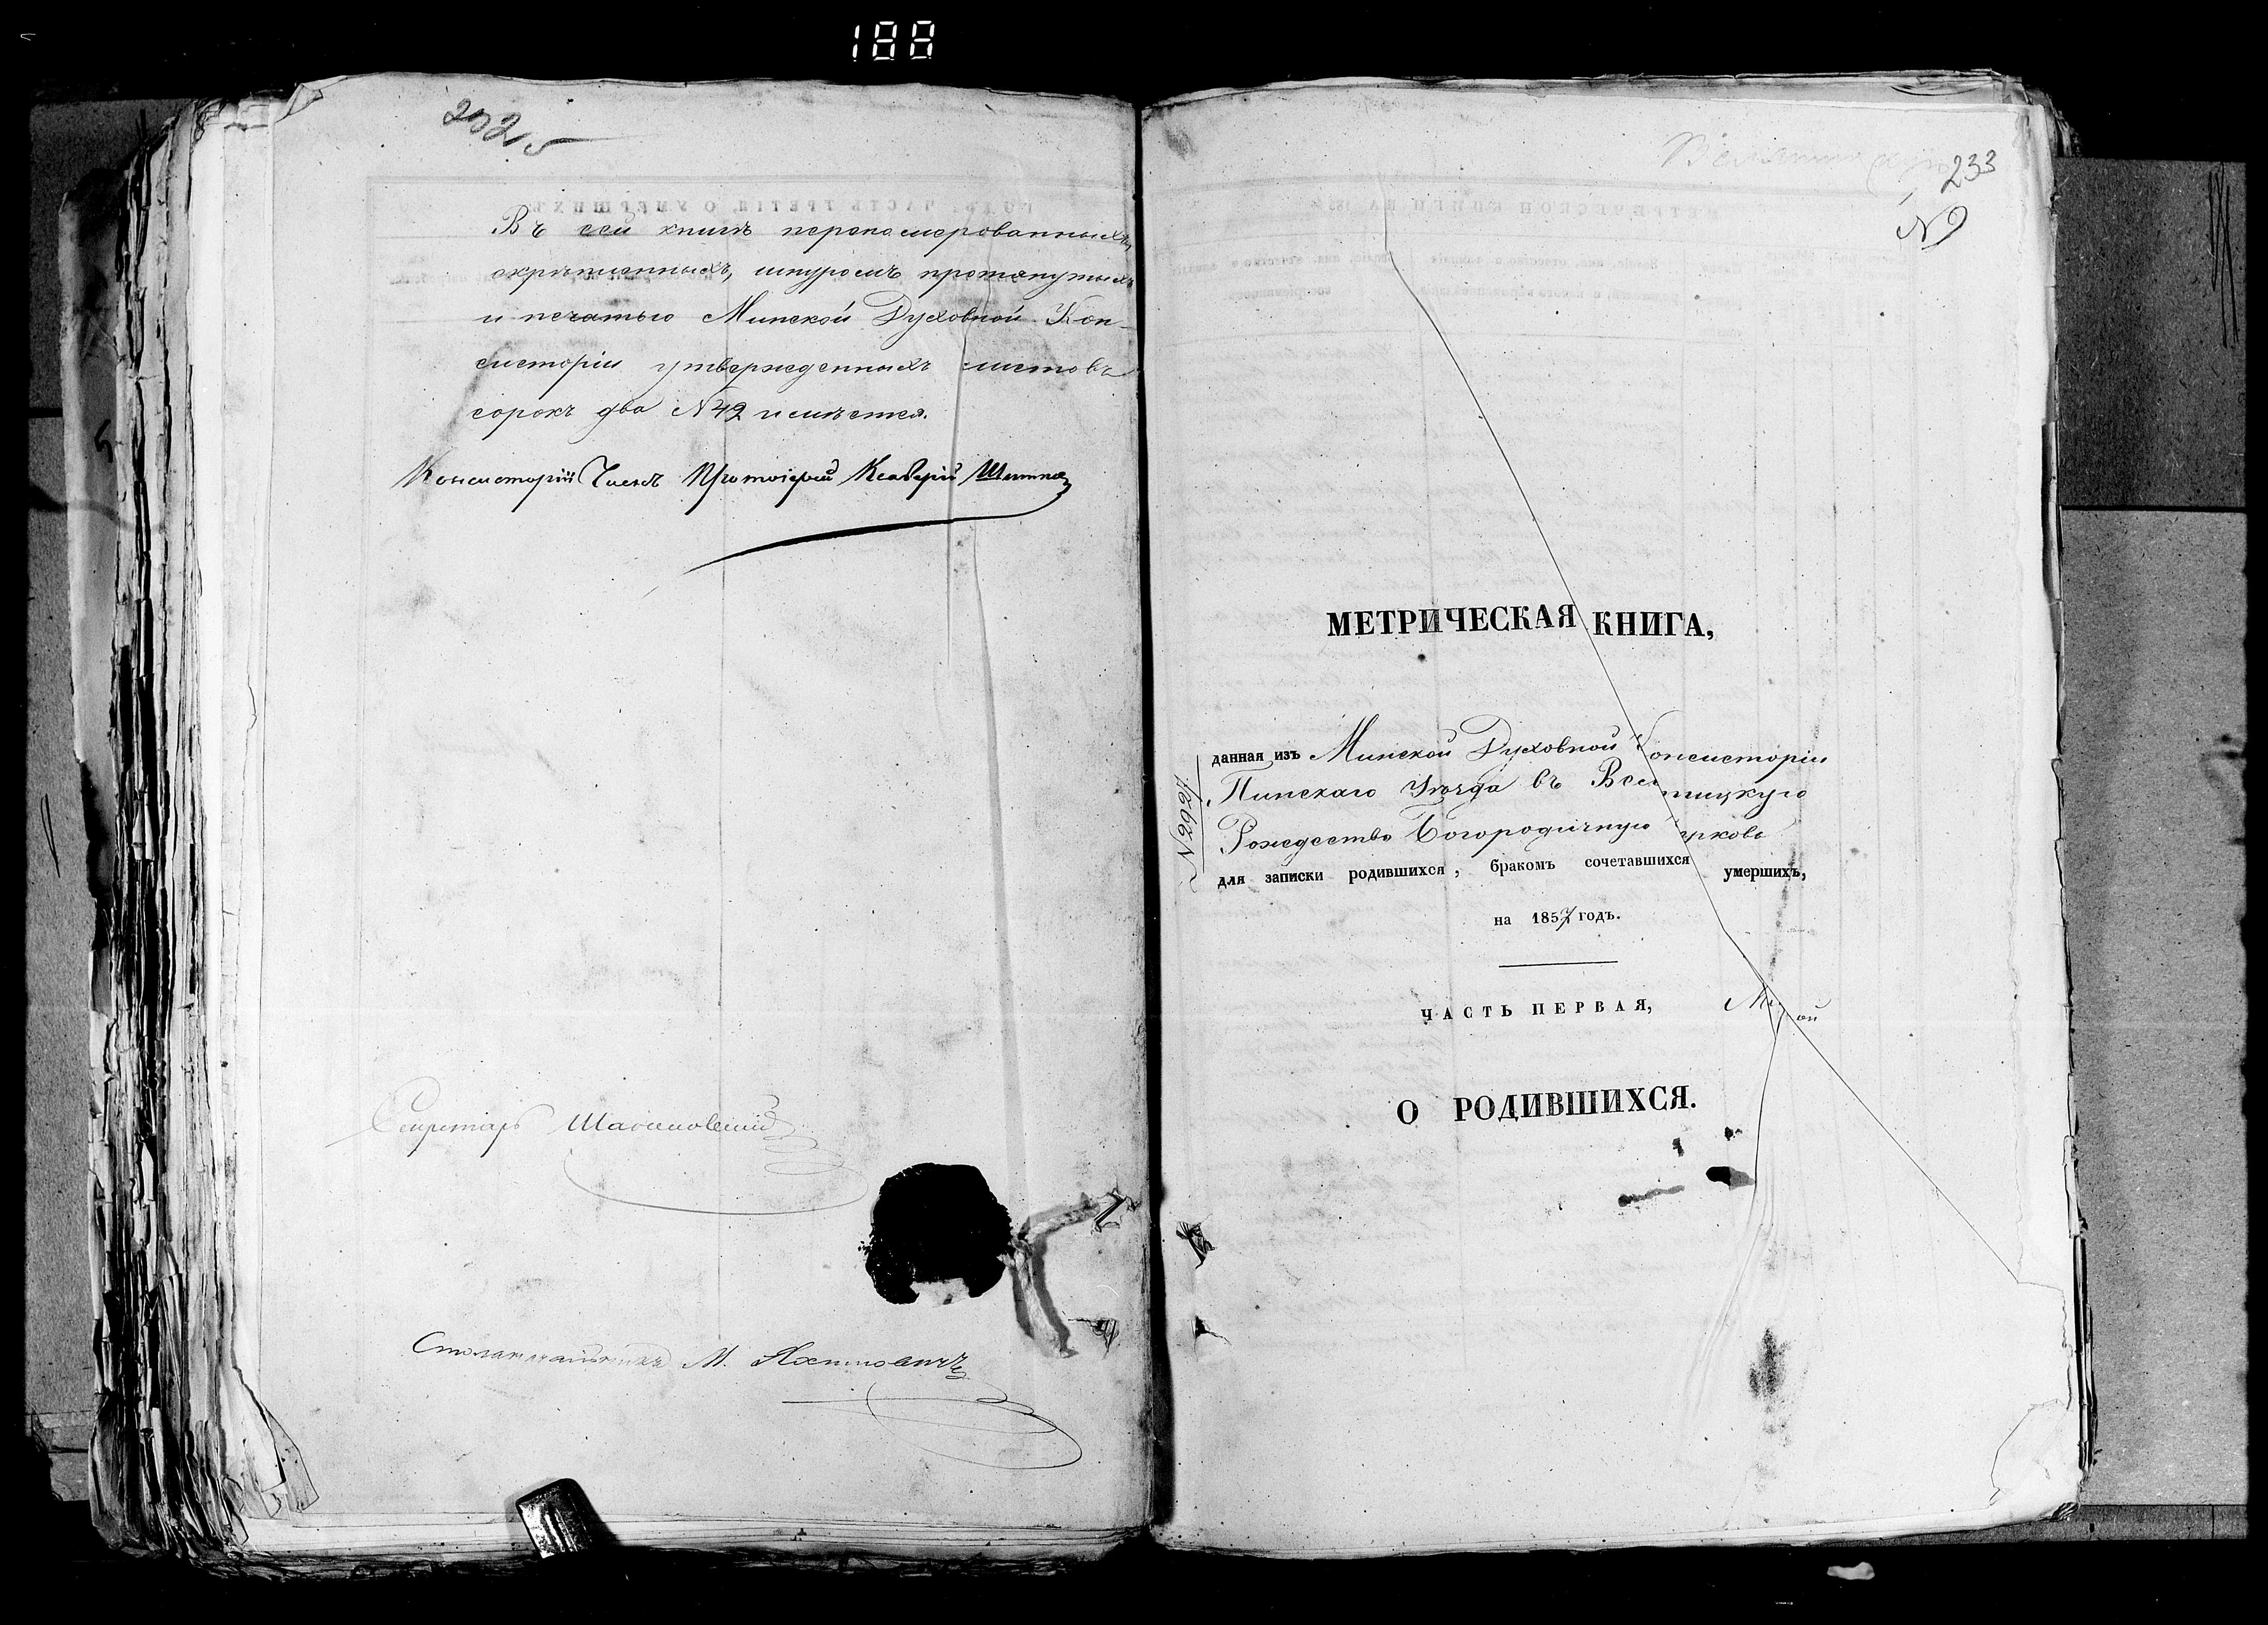 188
232об
Въ сей книгѣ переномерованныхъ,
скрѣпленныхъ, шнуромъ протянутыхъ
и печатью Минской Духовной Кон-
систоріи утвержденныхъ листовъ
сорокъ два N 42 имѣется.
Консисторіи Членъ Протоіерей Ксаверій
Секретарь
Столоначальникъ М.
233
N 9
МЕТРИЧЕСКАЯ КНИГА,
данная изъ Минской Духовной Консисторіи
Пинскаго Уѣзда въ
Рождество Богородичную церковь
N 2927.
для записки родившихся, бракомъ сочетавшихся умершихъ,
на 1857 годъ.
ЧАСТЬ ПЕРВАЯ,
О РОДИВШИХСЯ.